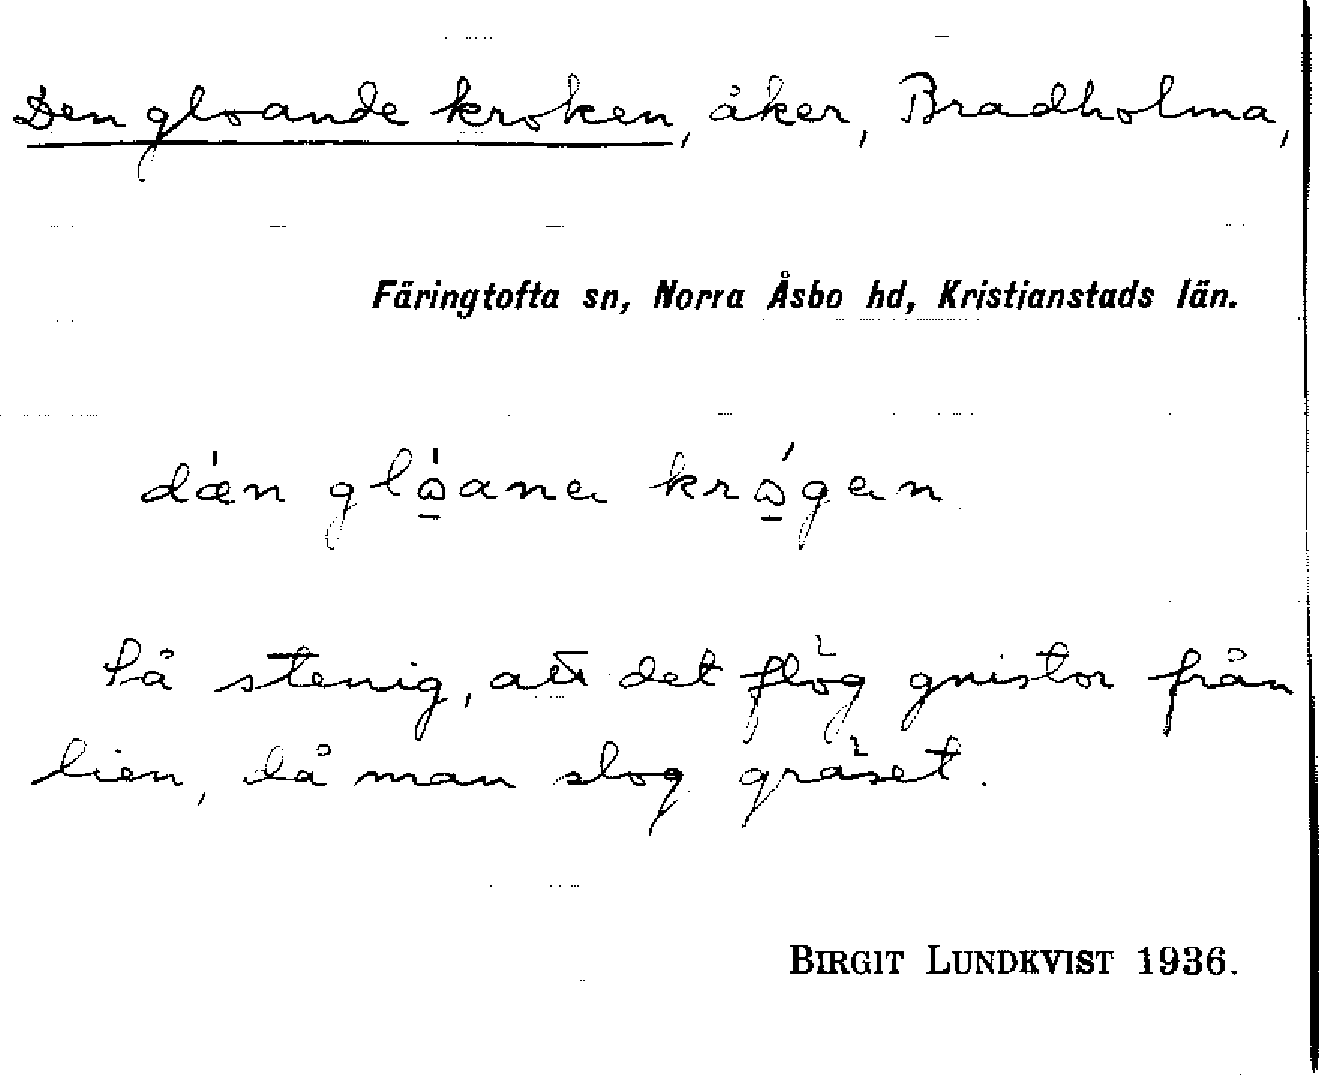 Den gloande kroken, åker, Bradholma,
Färingtofta sn, Norra Åsbo hd, Kristianstads län.
dǽn gló̱ana kró̱gan
Så stenig, att det flög gnistor från
lien, då man slog gräset.
BIRGIT LUNDKVIST 1936.